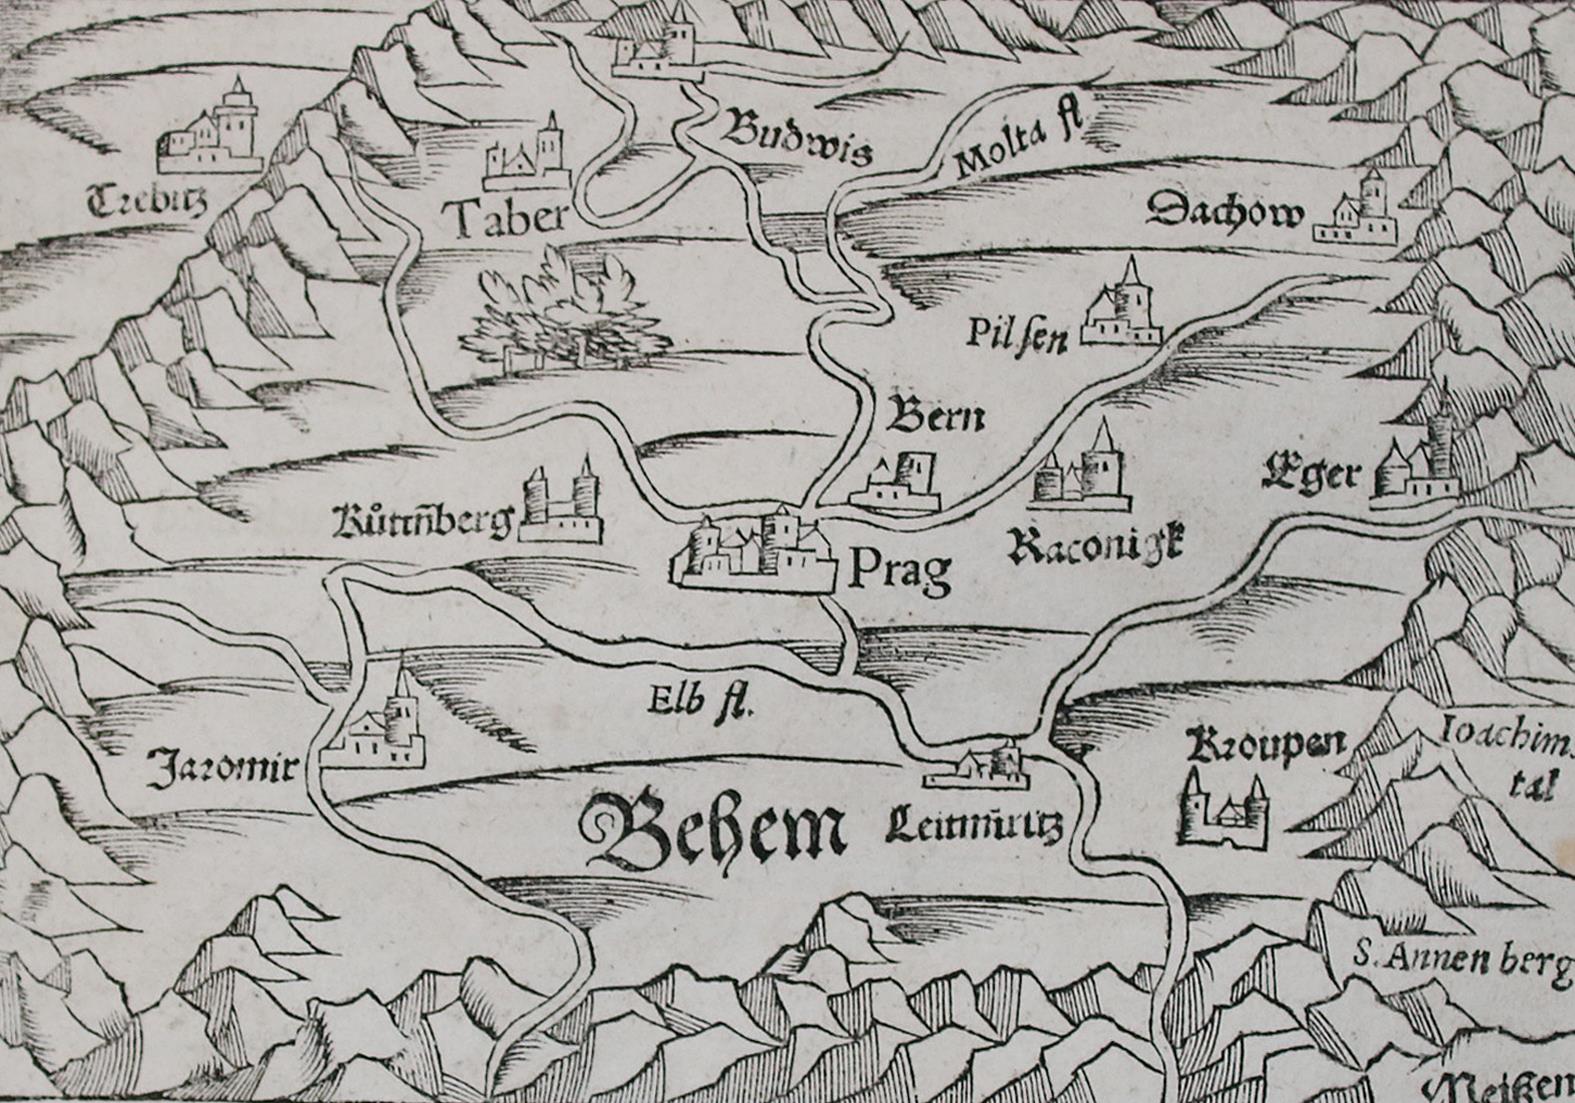 Budwis
Molta fl
Trebitz
Taber
Dachow
Pilsen
Bern
Eger
Kůttn̄berg
Raconigk
Prag
Elb fl.
Jaromir
Kroupen
Ioachims
tal
Behem
Leitmūritz
S. Annen berg
Meissen